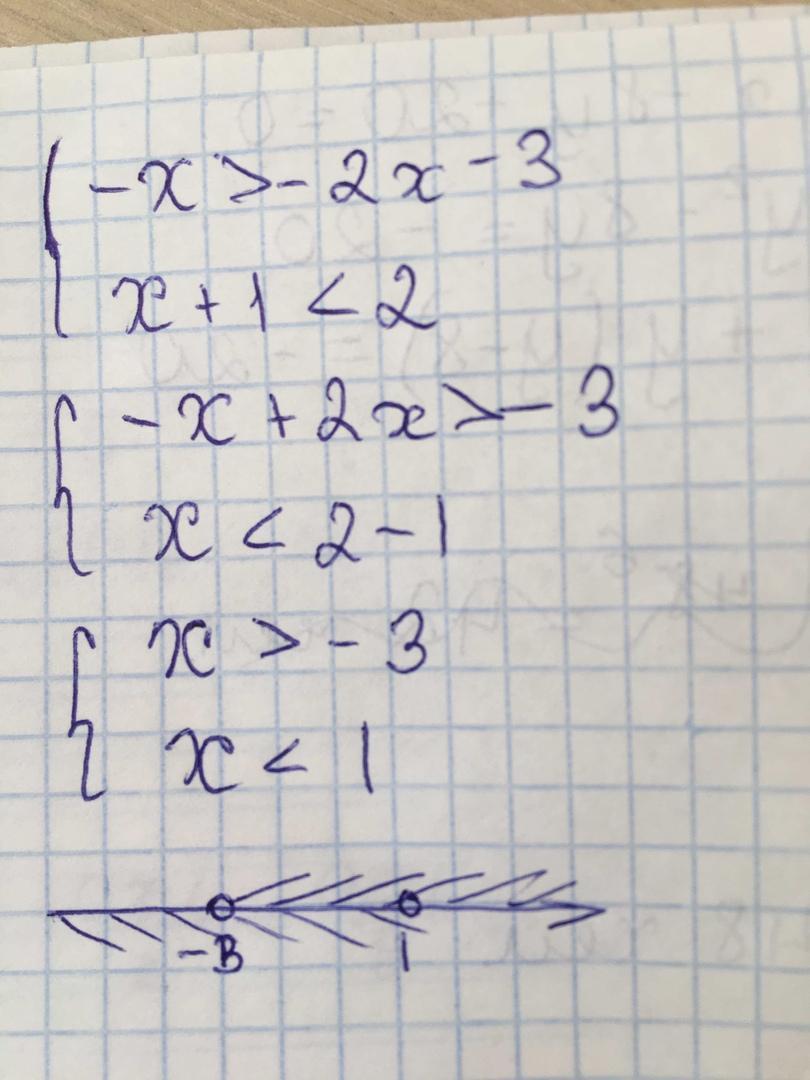 -x > -2x - 3
x + 1 < 2
-x + 2x > -3
x < 2 - 1
x > -3
x < 1
-3 1